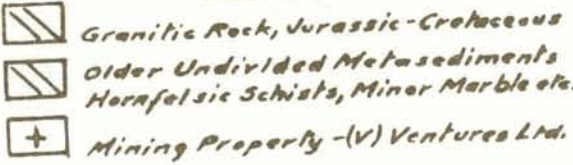 Granitic Rock, Jurassic-Cretaceous
Older Undivided Metasediments
Hornfelsic Schists, Minor Marble etc.
Mining Property -(V) Ventures Ltd.